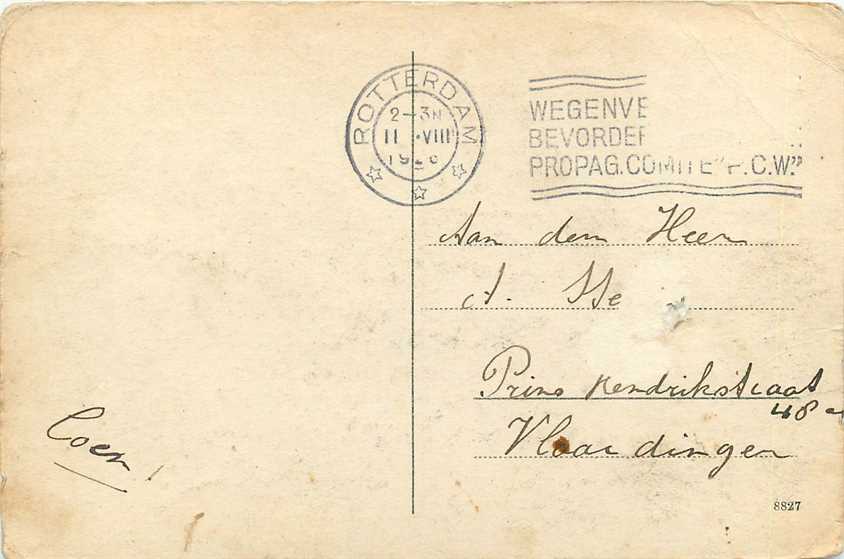 ROTTERDAM
2-3N
11 VIII
19
WEGENVE
BEVORDER
PROPAG.COMITE "P.C.W."
Aan den Heer
A.
Prins Hendrikstraat
48 a
Vlaardingen
Coen
8827